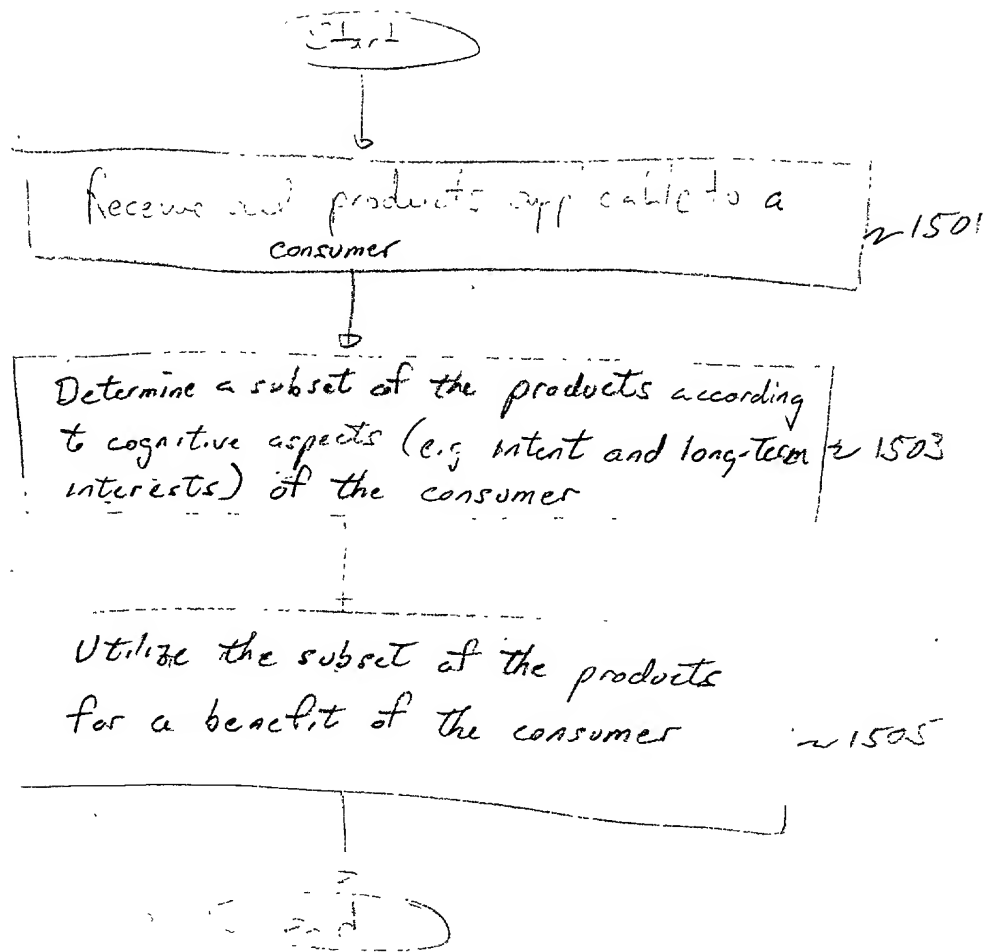 Start
Receive products applicable to a
consumer
~1501
Determine a subset of the products according
to cognitive aspects (e.g intent and long-term
interests) of the consumer
~1503
Utilize the subset of the products
for a benefit of the consumer
~1505
End